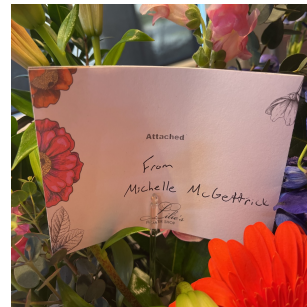 Attached
From
Michelle McGettrick